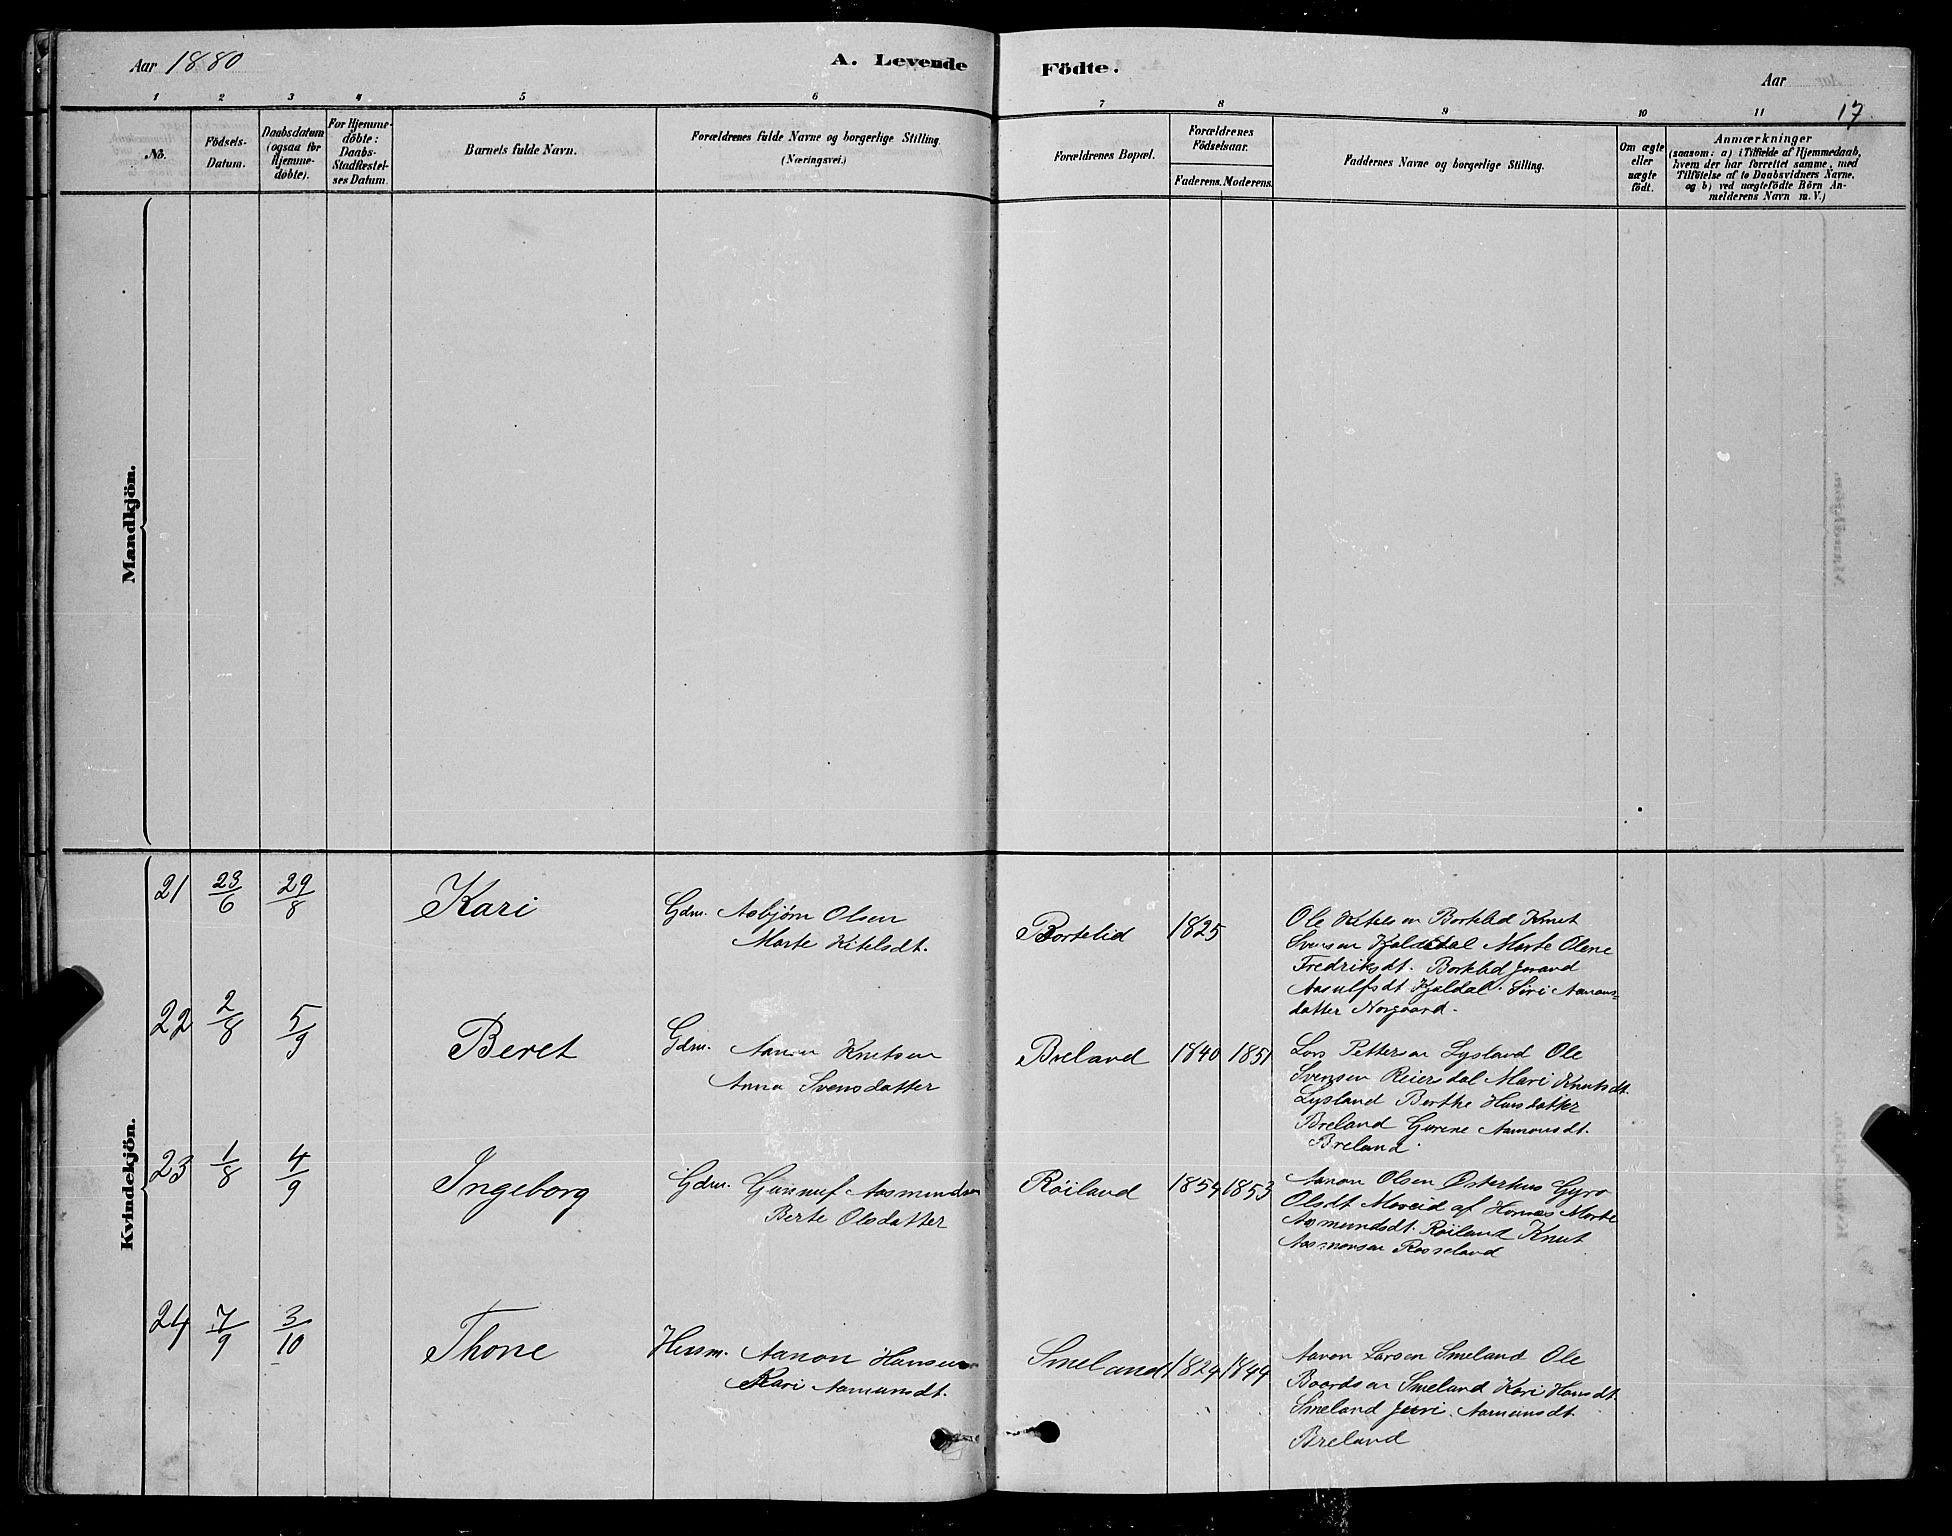 Aar 1880
A. Levende Födte.
Aar
17
1 2 3 4 5 6 7 8 9 10 11
No.
Födsels-
Datum.
Daabsdatum
(ogsaa for
Hjemme-
døbte).
For Hjemme-
döbte:
Daabs-
Stadfæstel-
ses Datum.
Barnets fulde Navn.
Forældrenes fulde Navne og borgerlige Stilling.
(Næringsvei.)
Forældrenes Bopæl.
Forældrenes
Födselsaar.
Faderens. Moderens.
Faddernes Navne og borgerlige Stilling.
Om ægte
eller
uægte
födt.
Anmærkninger
(saasom: a) i Tilfælde af Hjemmedaab,
hvem der har forrettet samme, med
Tilföielse af to Daabsvidners Navne.
og b) ved uægtefödte Börn An-
melderens Navn m. V.)
Mandkjön.
Kvindekjön.
21 23/6 29/8 Kari
Gdm. Asbjørn Olsen
Marte Ketelsdt.
Bortelid 1825
Ole Ketelsen Bortelid Knut
Svensen Kjaldal Marte Olene
Fredriksdt. Bortelid Jorand
Aasulfsdt Kjaldal. Siri Aanons-
datter Norgaard.
22 2/8 5/9 Beret
Gdm. Aanon Knutsen
Anna Svensdatter
Breland 1840 1851
Lars Pettersen Lysland Ole
Svensen Reiersdal Mari Knutsdt.
Lysland Berthe Hansdatter
Breland Gurine Aamonsdt.
Breland.
23 1/8 4/9 Ingeborg
Gdm. Gunnuf Aasmundsen
Berte Olsdatter
Røiland 1854 1853
Aanon Olsen Østerhus Gyro
Olsdt Moseid af Hornes Marte
Aasmundsdt. Røiland Knut
Aasmonsen Rosseland
24 7/9 3/10 Thone
Husm. Aanon Hansen
Kari Aamunsdt.
Smeland 1829 1844
Aanon Larsen Smeland Ole
Baardsen Smeland Kari Hansdt.
Smeland Juri Aamunsdt.
Breland